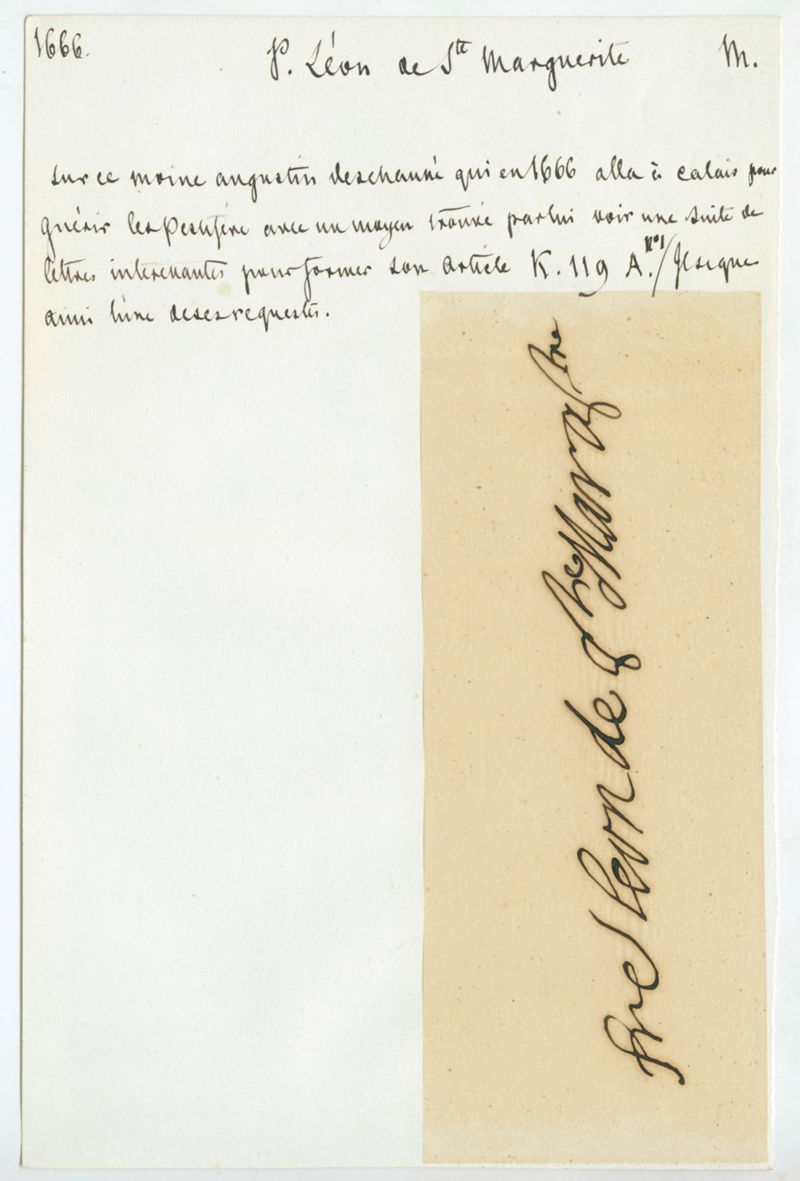 1666. P. Léon de Ste Marguerite M.
sur ce moine augustin deschaussé qui en 1666 alla à calais pour
guérir les pestiféré avec un moyen trouvé par lui voir une suite de
lettres interenantes pour former son article K. 119 A. N°1/ Il signe
ainsi l'une de ses requestes.
fre Leon de Ste Margtre